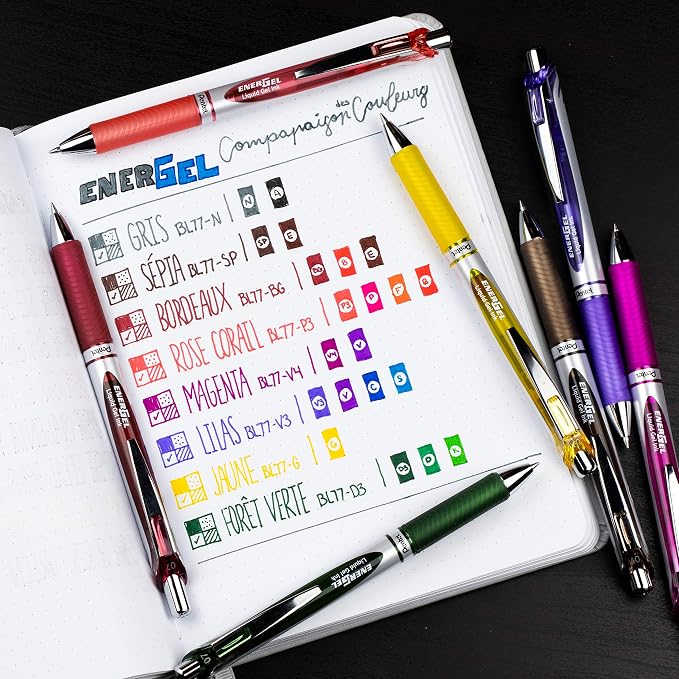 Pentel ENERGEL Liquid Gel Ink
des
ENERGEL Compapaison Couleurs
GRIS BL77-N N A
SÉPIA BL77-SP SP E
BORDEAUX BL77-BG BG B E
ROSE CORAIL BL77-P3 P3 P F B
MAGENTA BL77-V4 V4 V
LILAS BL77-V3 V3 V C S
JAUNE BL77-G G
FORÊT VERTE BL77-D3 D3 D K
Pentel ENERGEL Liquid Gel Ink 07
Pentel ENERGEL Liquid Gel Ink
Pentel ENERGEL Liquid Gel Ink 07
Pentel ENERGEL
Pentel ENERGEL
Pentel ENERGEL